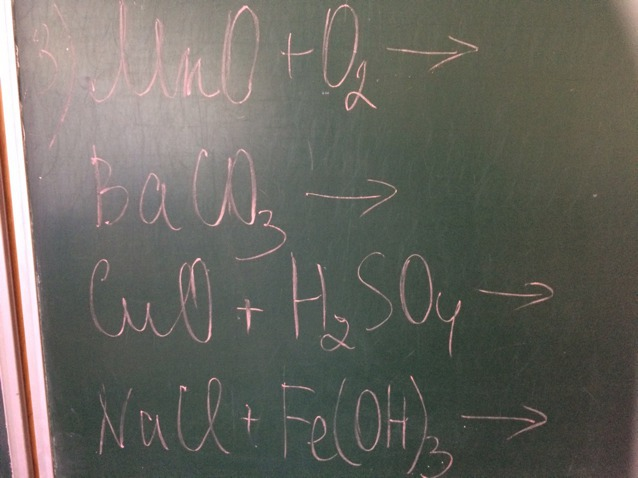 3) MnO + O₂ →
BaCO₃ →
CuO + H₂SO₄ →
NaCl + Fe(OH)₃ →